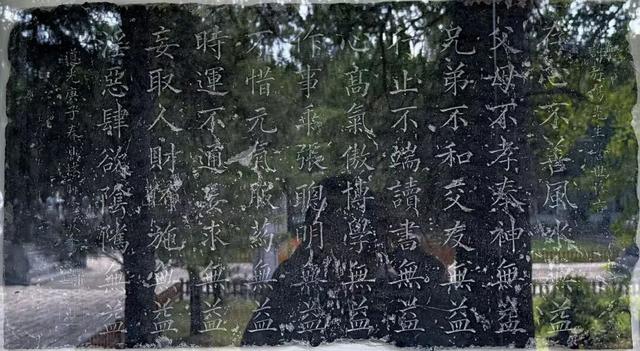 存心不善風水無益
父母不孝奉神無益
兄弟不和交友無益
行止不端讀書無益
心高氣傲博學無益
作事乖張聰明無益
不惜元氣服藥無益
時運不通妄求無益
妄取人財佈施無益
淫惡肆欲陰騭無益
庚子春